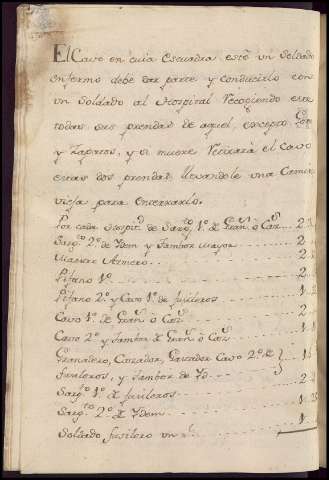 El Cavo en cuia escuadra esté un Soldado
enfermo debe dar parte y conducirlo con
un Soldado al Hospital Recogiendo este
todas sus prendas de aquel, excepto
y Zapatos, y si muere Retirará el Cavo
estas dos prendas llevandole una Camisa
vieja para enterrarlo.
Por cada Hospit.d de Sarg.to 1.º de Gran.s ó Caz.s .. 2..
Sarg.to 2.º de Ydem y Tambor Mayor ... 2..
Maestro Armero ... 2..
Pifano 1.º ... 2..
Pifano 2.º y Cavo 1.º de fusileros ... 1..
Cavo 1.º de Gran.s ó Caz.s ... 2..
Cavo 2.º y Tambor de Gran.s ó Caz.s ... 1..
Granadero, Cazador, Gastador Cavo 2.º de
fusileros, y Tambor de Yd. ... 1..
Sarg.to 1.º de fusileros ... 2..
Sarg.to 2.º de Ydem ... 1..
Soldado fusilero un ... 1..